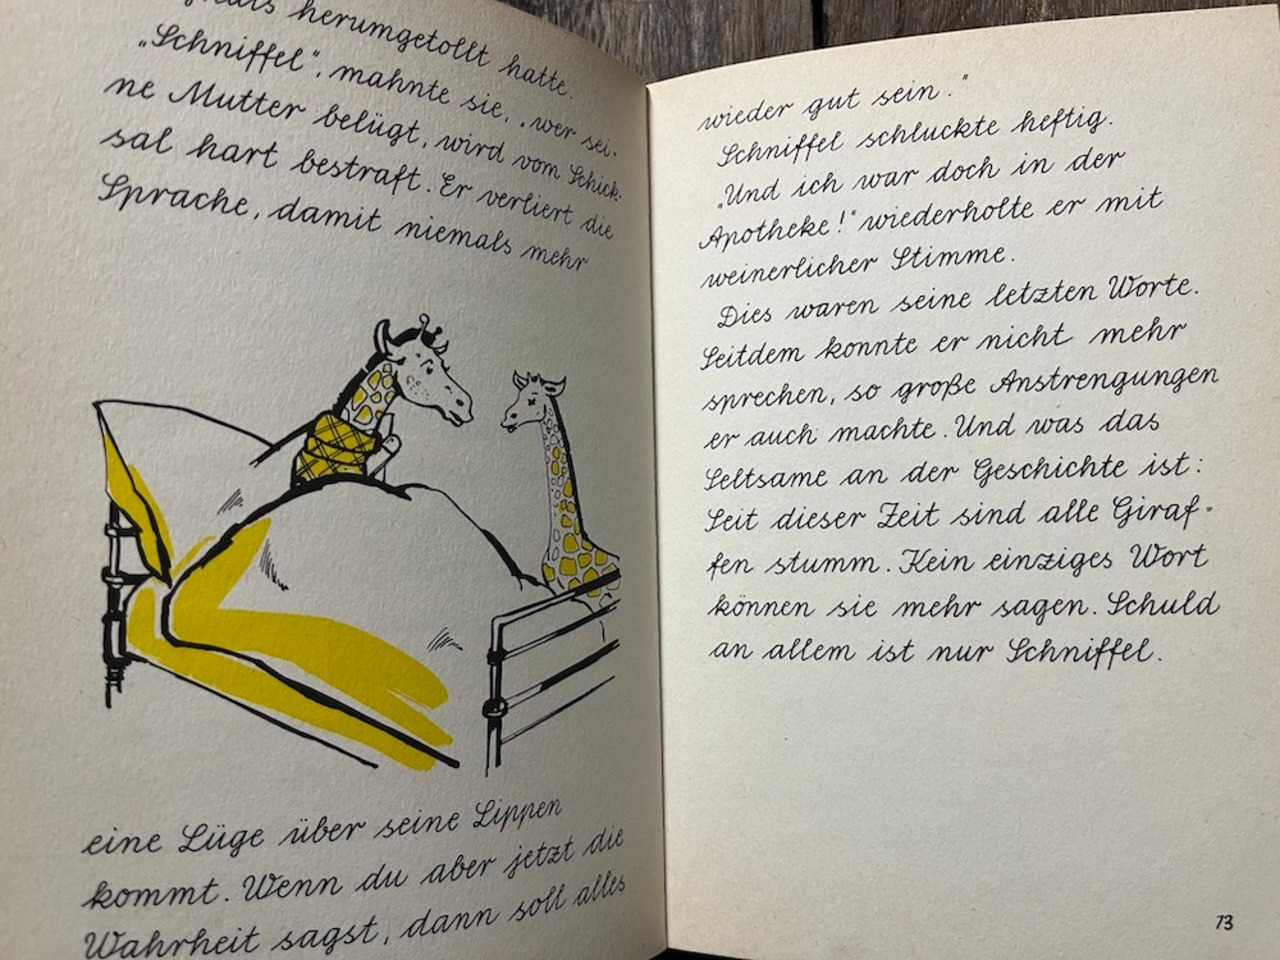 herumgetollt hatte.
„Schniffel“, mahnte sie, „wer sei-
ne Mutter belügt, wird vom Schick-
sal hart bestraft. Er verliert die
Sprache, damit niemals mehr
eine Lüge über seine Lippen
kommt. Wenn du aber jetzt die
Wahrheit sagst, dann soll alles
wieder gut sein.“
Schniffel schluckte heftig.
„Und ich war doch in der
Apotheke!“ wiederholte er mit
weinerlicher Stimme.
Dies waren seine letzten Worte.
Seitdem konnte er nicht mehr
sprechen, so große Anstrengungen
er auch machte. Und was das
Seltsame an der Geschichte ist:
Seit dieser Zeit sind alle Giraf-
fen stumm. Kein einziges Wort
können sie mehr sagen. Schuld
an allem ist nur Schniffel.
73